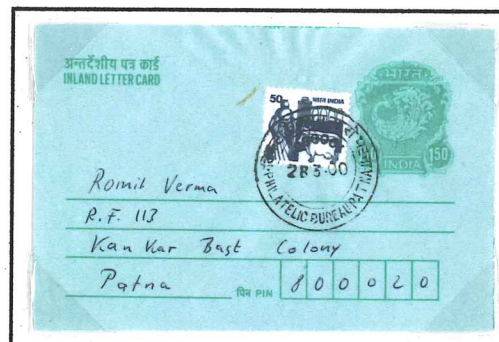 अन्तर्देशीय पत्र कार्ड
INLAND LETTER CARD
भारत
INDIA
150
50
भारत INDIA
28 3.00
PHILATELIC BUREAU PATNA
Romit Verma
R.F. 113
Kankar Bagt Colony
Patna
पिन PIN 800020